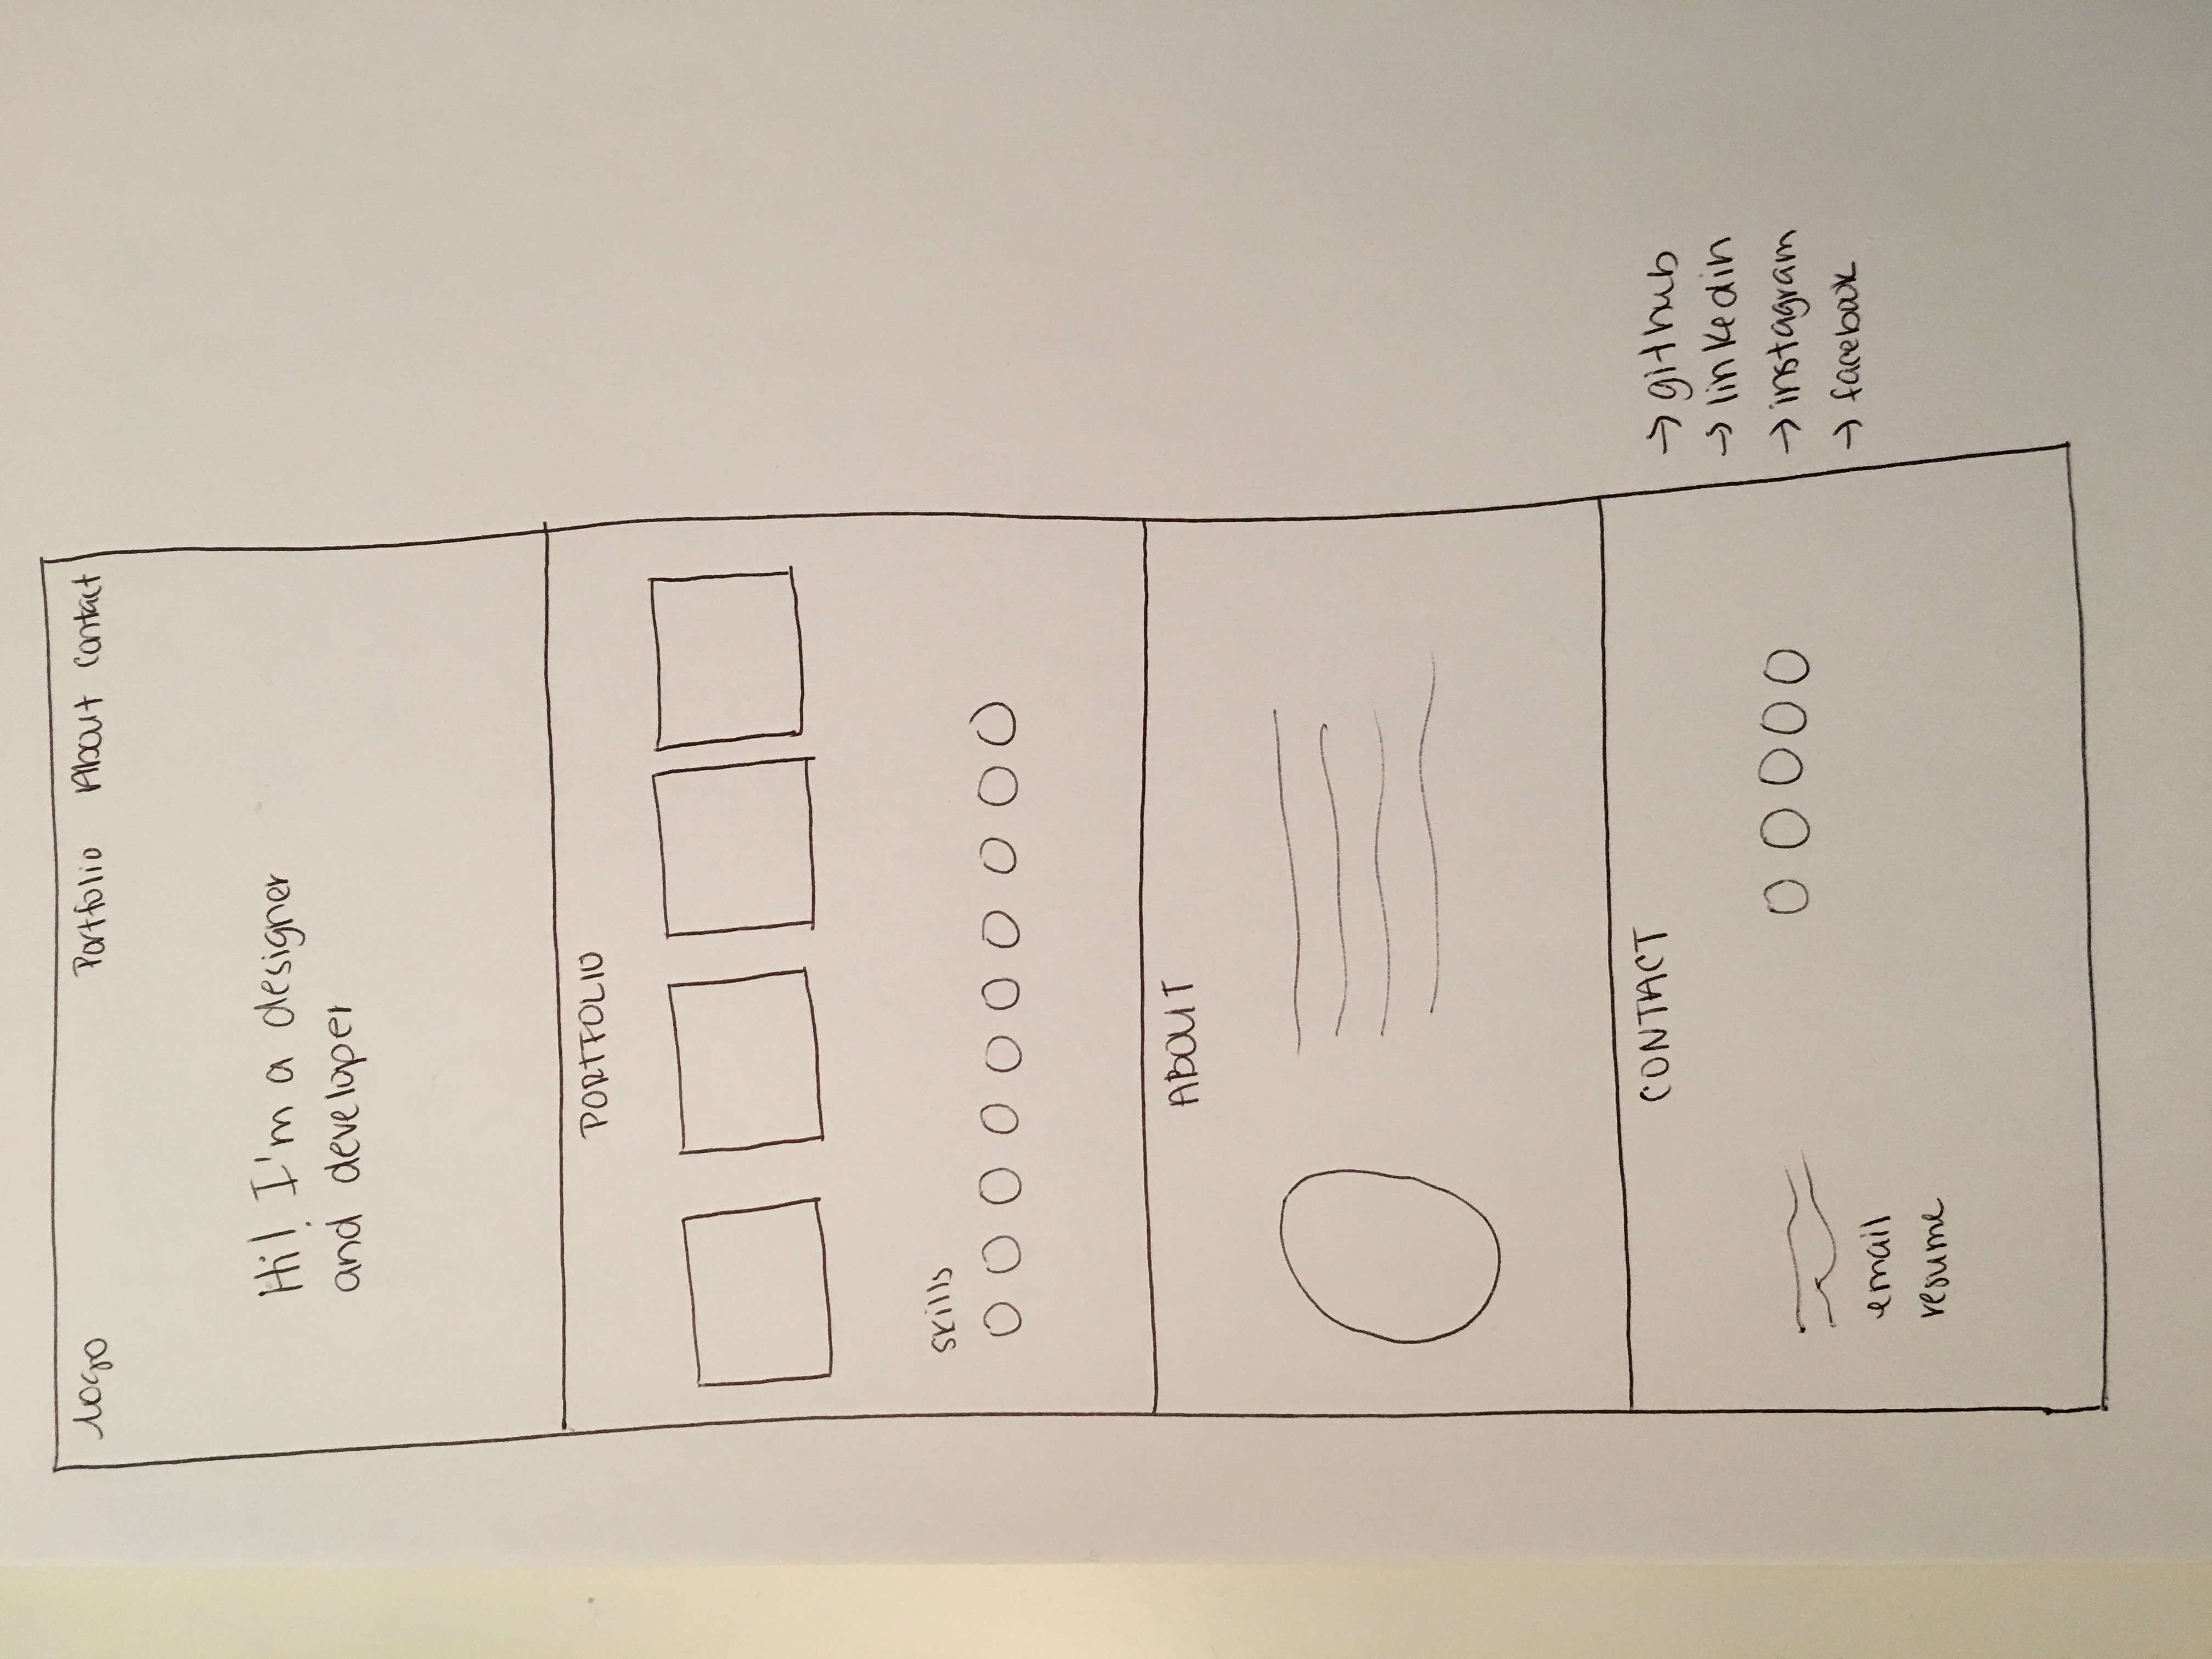 logo
Portfolio About Contact
Hi! I'm a designer
and developer
PORTFOLIO
skills
ABOUT
CONTACT
email
resume
→ github
→ linkedin
→ instagram
→ facebook